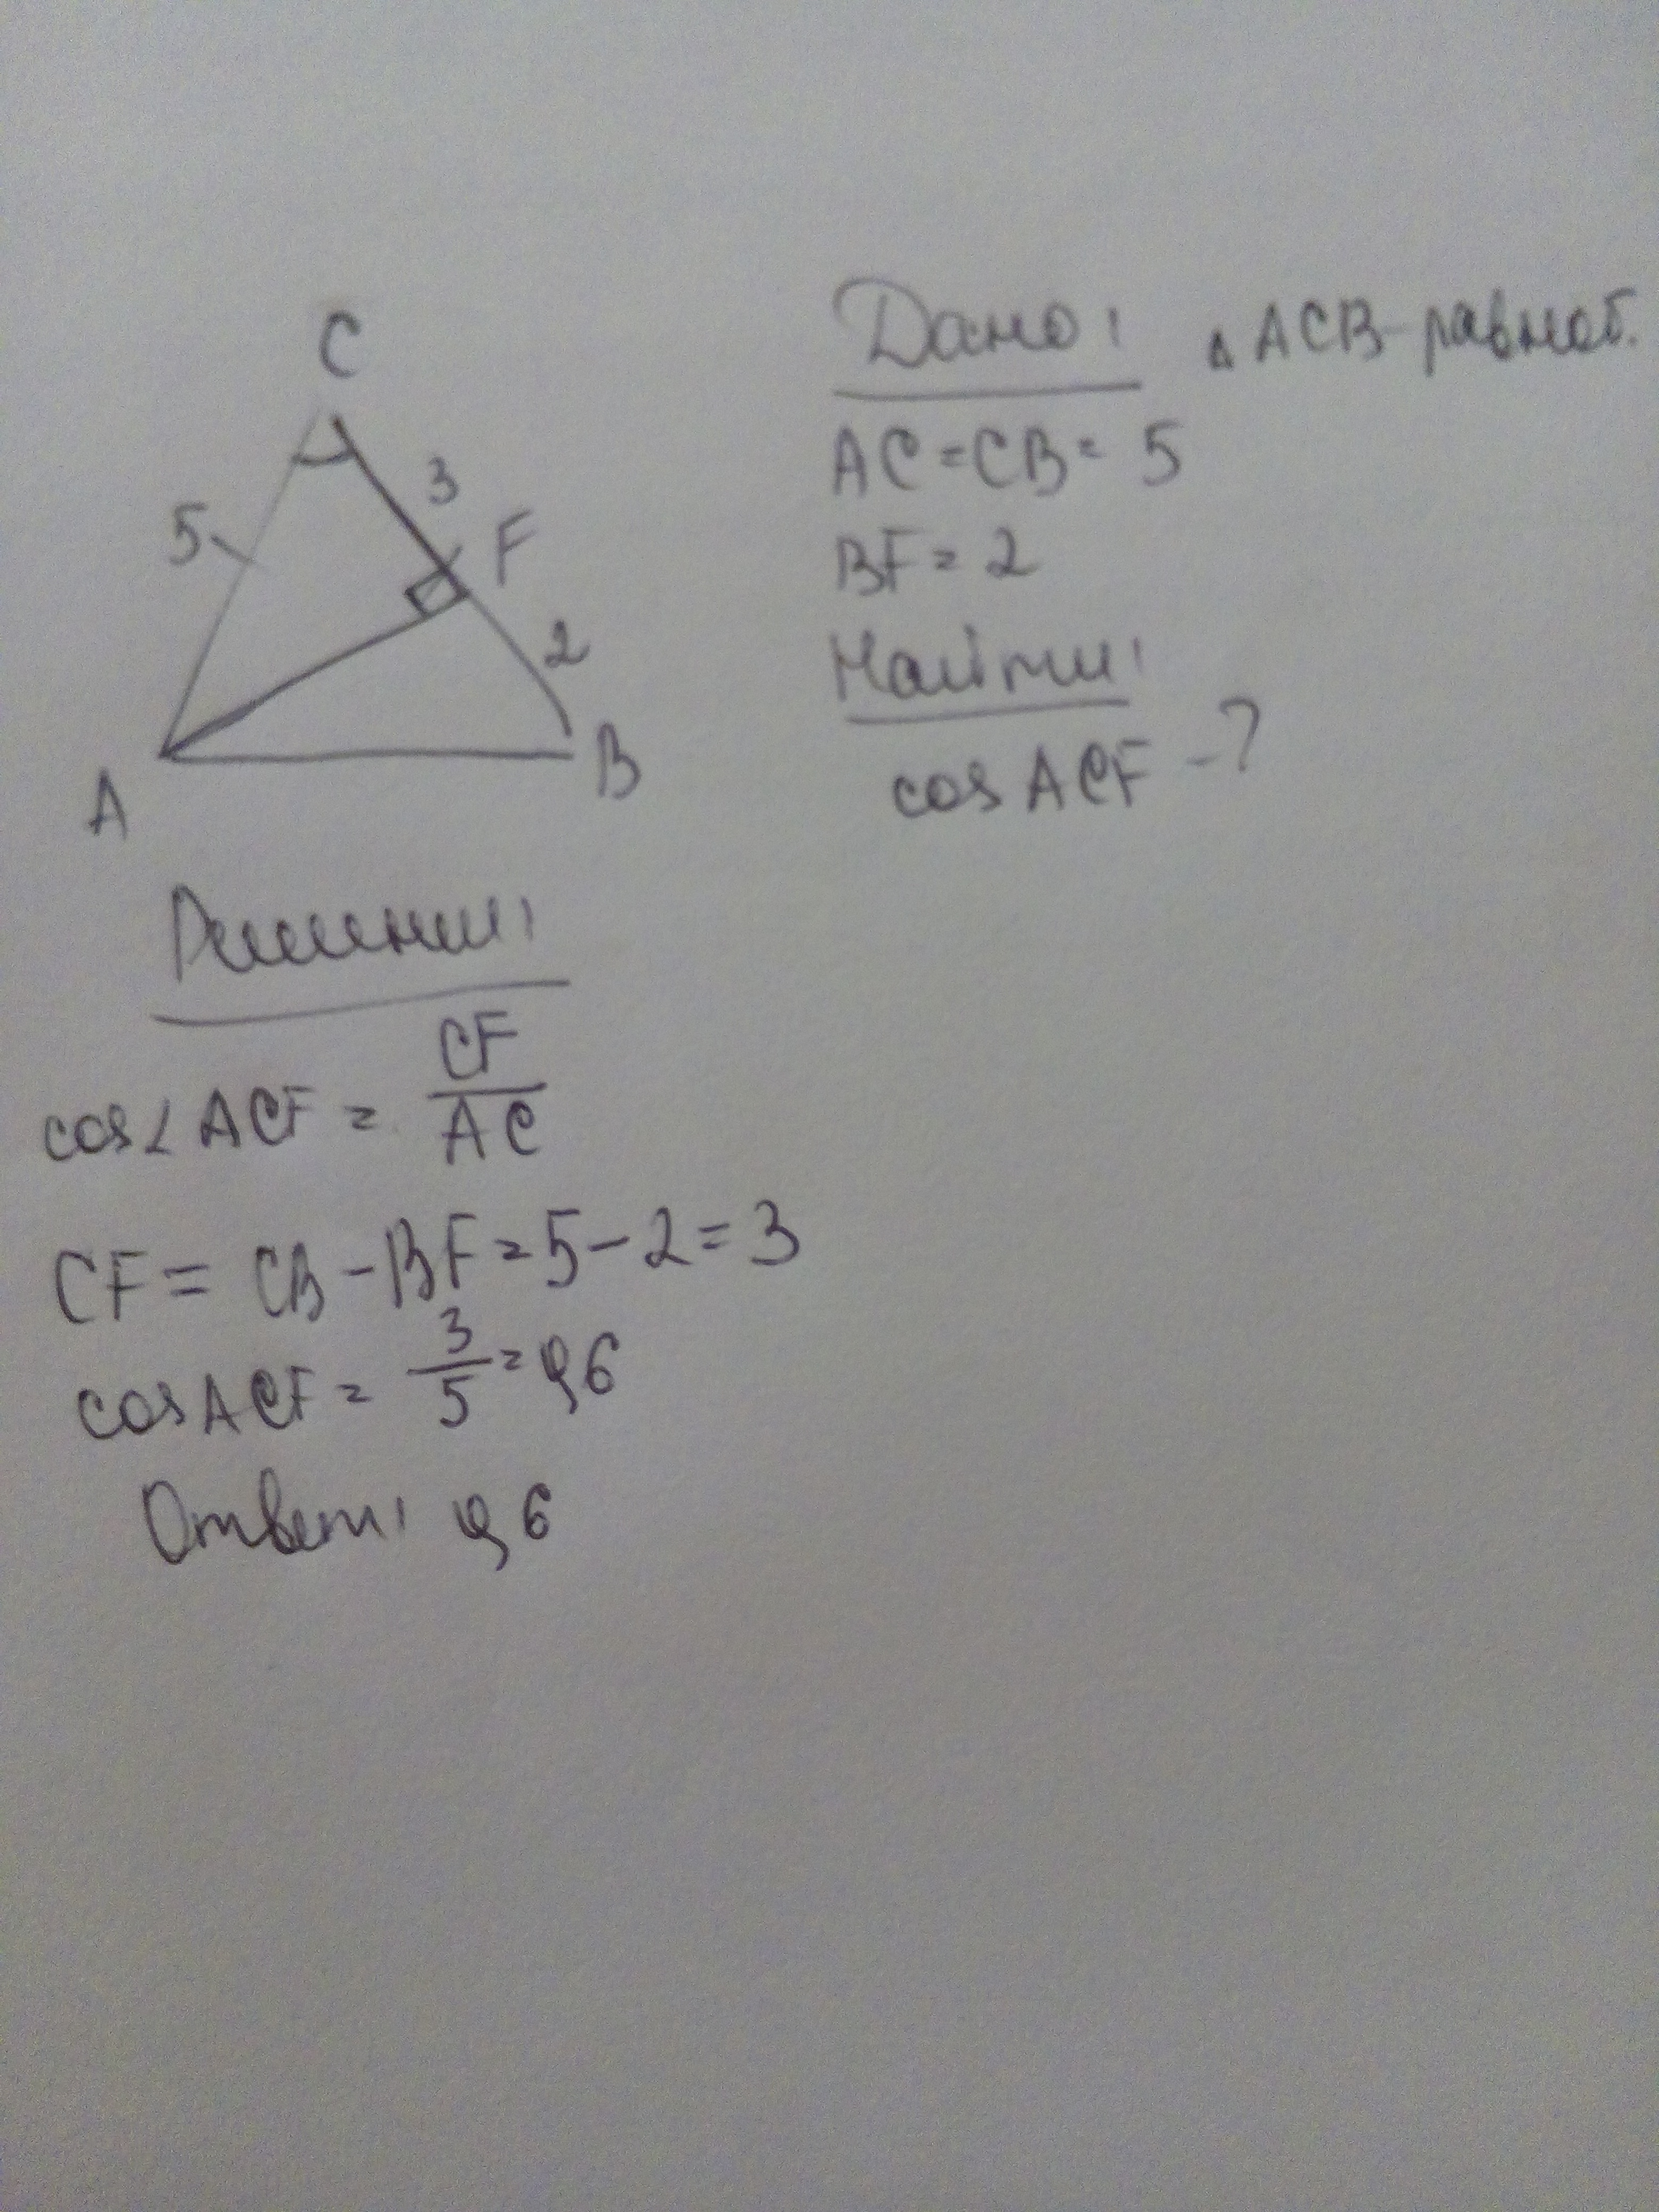 C
3
5
F
2
A
B
Дано: △ ACB - равноб.
AC = CB = 5
BF = 2
Найти:
cos ACF - ?
Решение:
cos∠ ACF = CF/AC
CF = CB - BF = 5 - 2 = 3
cos ACF = 3/5 = 0,6
Ответ: 0,6